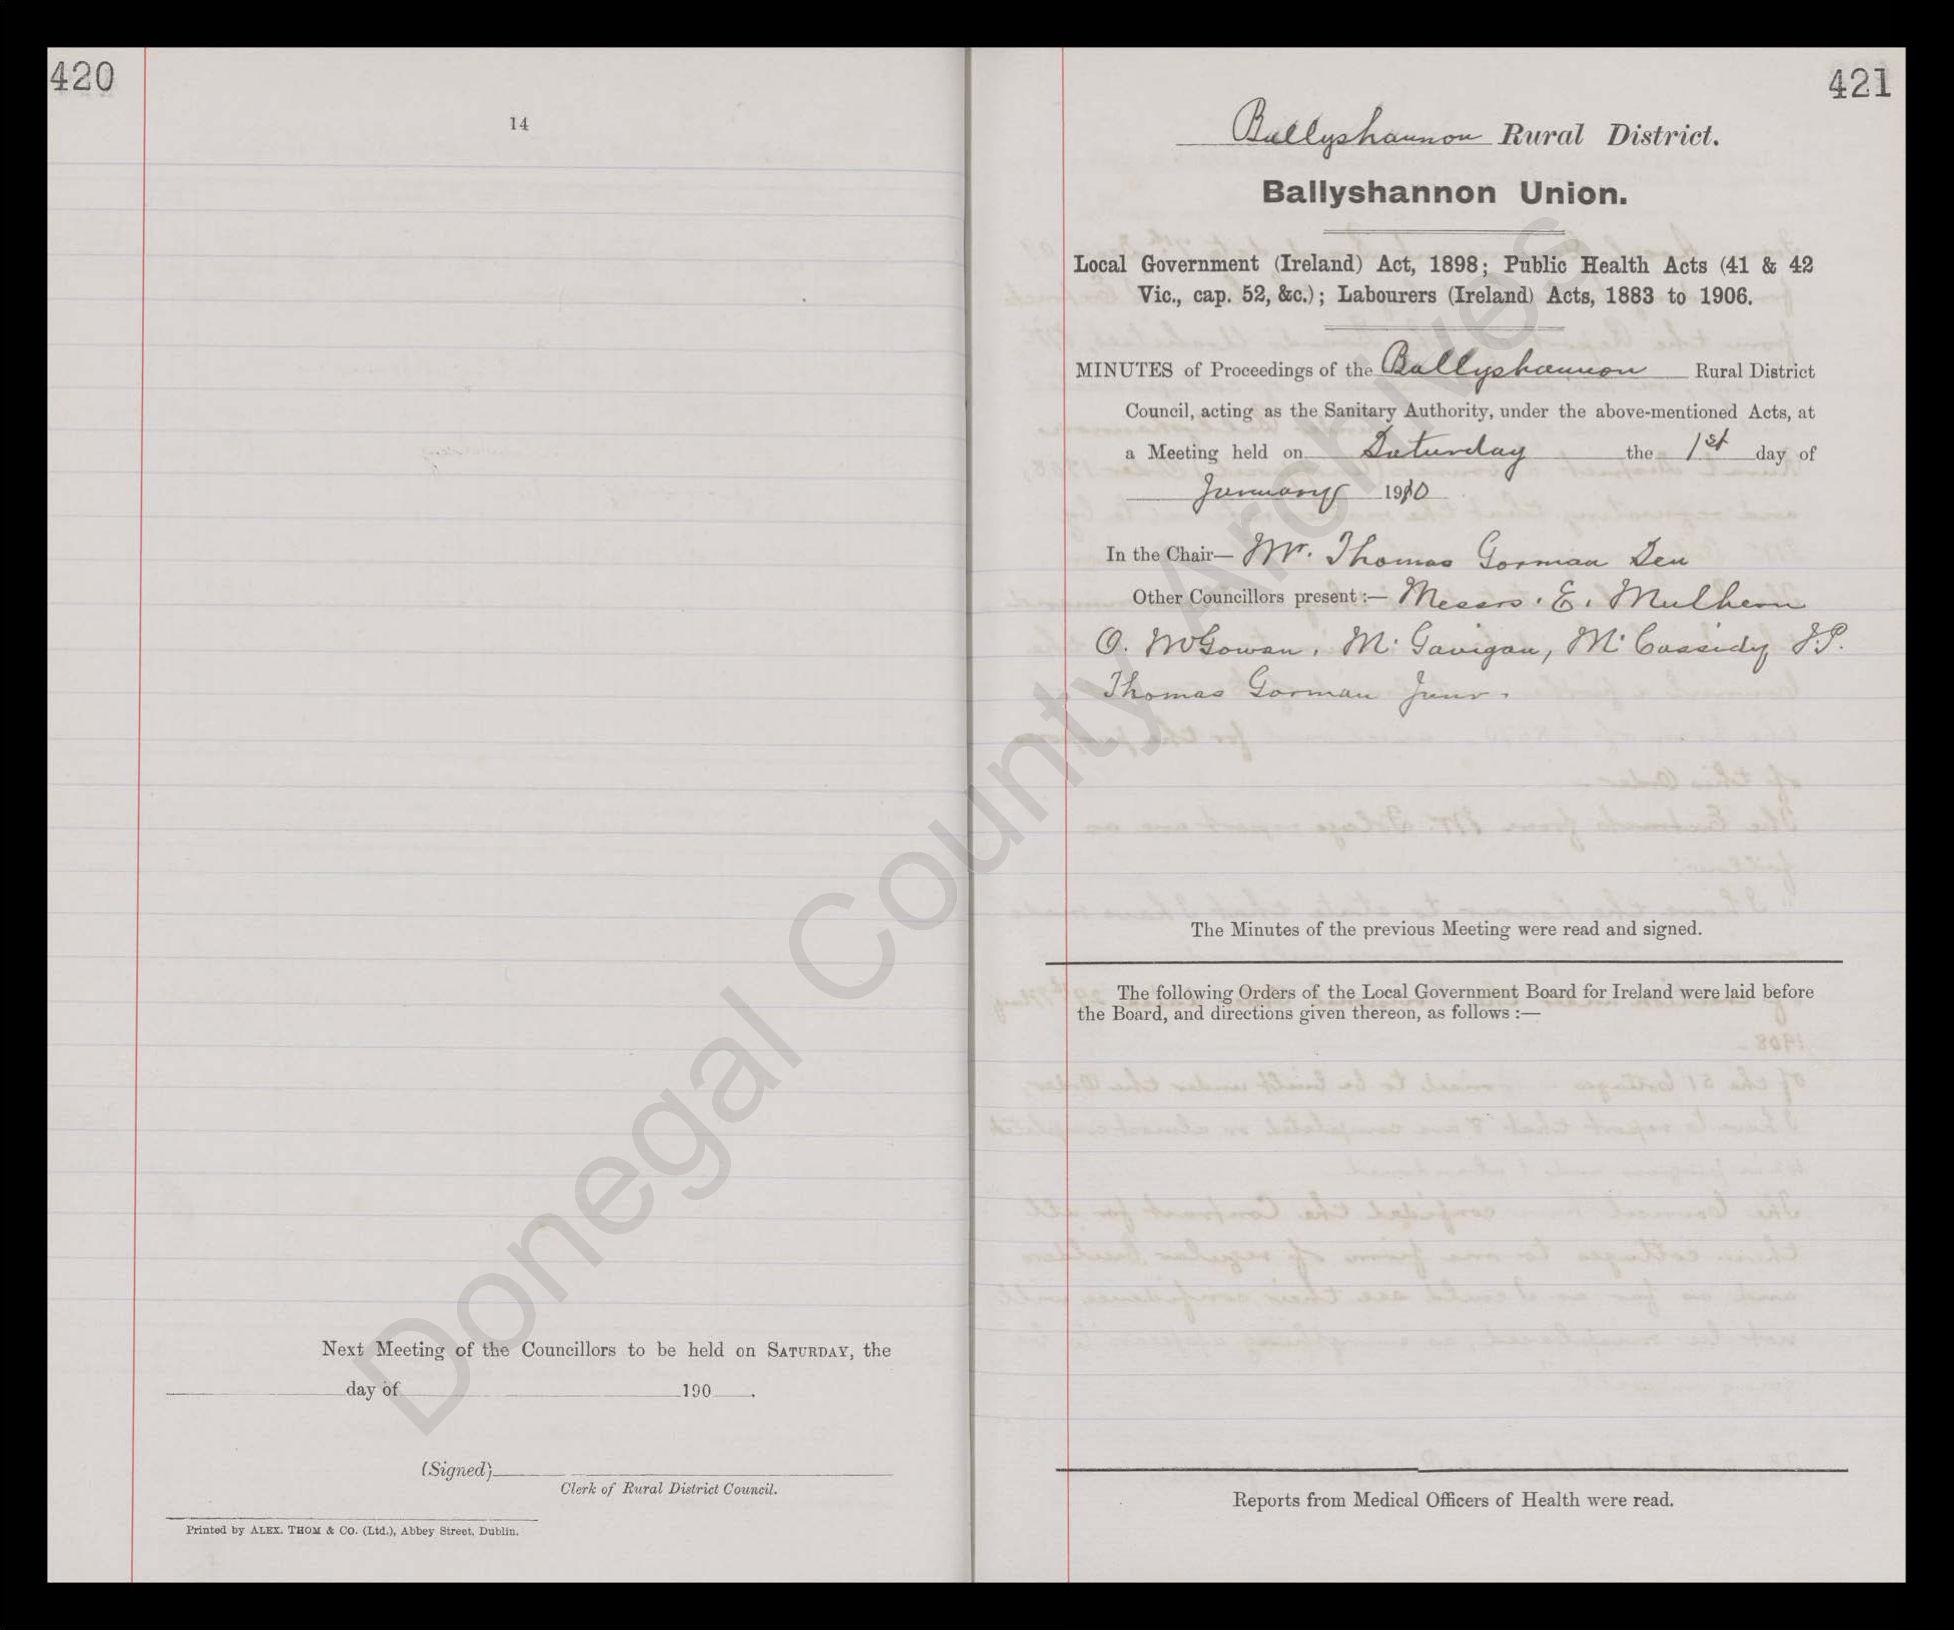 420
14
Next Meeting of the Councillors to be held on SATURDAY, the
day of 190 .
(Signed)
Clerk of Rural District Council.
Printed by ALEX. THOM & CO. (Ltd.), Abbey Street, Dublin.
421
Ballyshannon Rural District.
Ballyshannon Union.
Local Government (Ireland) Act, 1898; Public Health Acts (41 & 42
Vic., cap. 52, &c.); Labourers (Ireland) Acts, 1883 to 1906.
MINUTES of Proceedings of the Ballyshannon Rural District
Council, acting as the Sanitary Authority, under the above-mentioned Acts, at
a Meeting held on Saturday the 1st day of
January 1910
In the Chair— Mr. Thomas Gorman Sen
Other Councillors present :— Messrs. E. Mulhern
O. McGowan, M. Gavigan, M. Cassidy J.P.
Thomas Gorman Junr.
The Minutes of the previous Meeting were read and signed.
The following Orders of the Local Government Board for Ireland were laid before
the Board, and directions given thereon, as follows :—
Reports from Medical Officers of Health were read.
Donegal County Archives